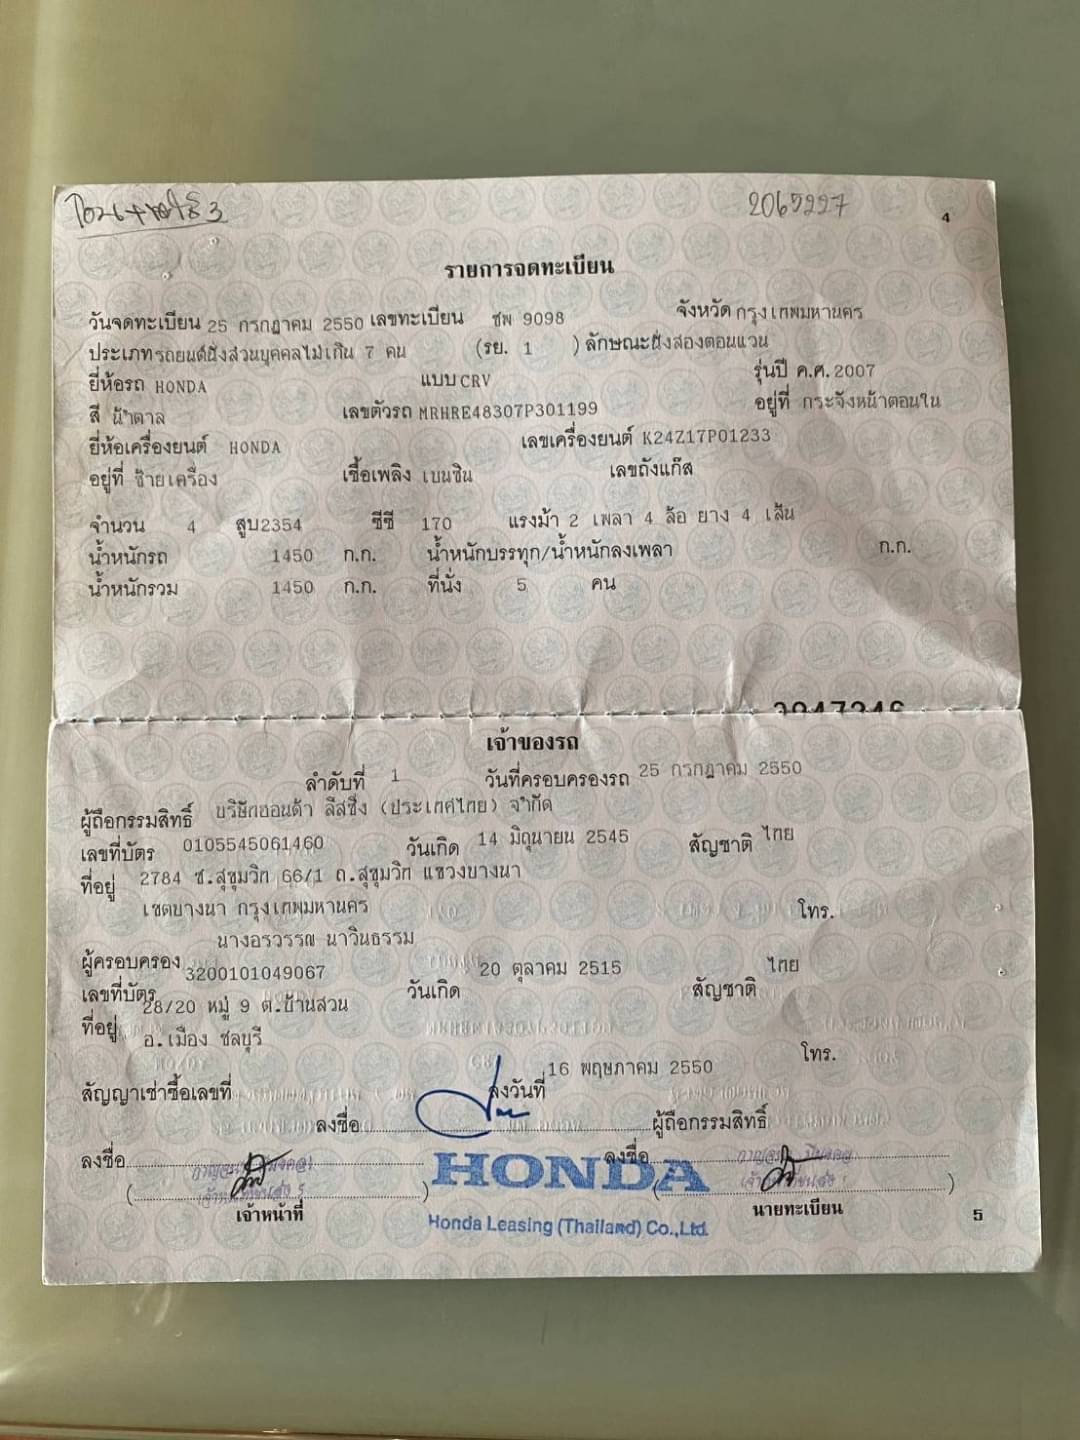 โอน+ขอใช้ 3
2065227
4
รายการจดทะเบียน
วันจดทะเบียน 25 กรกฎาคม 2550 เลขทะเบียน ชพ 9098 จังหวัด กรุงเทพมหานคร
ประเภท รถยนต์นั่งส่วนบุคคลไม่เกิน 7 คน (รย. 1 ) ลักษณะ นั่งสองตอนแวน
ยี่ห้อรถ HONDA แบบ CRV รุ่นปี ค.ศ. 2007
สี น้ำตาล เลขตัวรถ MRHRE48307P301199 อยู่ที่ กระจังหน้าตอนใน
ยี่ห้อเครื่องยนต์ HONDA เลขเครื่องยนต์ K24Z17P01233
อยู่ที่ ซ้ายเครื่อง เชื้อเพลิง เบนซิน เลขถังแก๊ส
จำนวน 4 สูบ 2354 ซีซี 170 แรงม้า 2 เพลา 4 ล้อ ยาง 4 เส้น
น้ำหนักรถ 1450 ก.ก. น้ำหนักบรรทุก/น้ำหนักลงเพลา ก.ก.
น้ำหนักรวม 1450 ก.ก. ที่นั่ง 5 คน
เจ้าของรถ
ลำดับที่ 1 วันที่ครอบครองรถ 25 กรกฎาคม 2550
ผู้ถือกรรมสิทธิ์ บริษัทฮอนด้า ลีสซิ่ง (ประเทศไทย) จำกัด
เลขที่บัตร 0105545061460 วันเกิด 14 มิถุนายน 2545 สัญชาติ ไทย
ที่อยู่ 2784 ซ.สุขุมวิท 66/1 ถ.สุขุมวิท แขวงบางนา
เขตบางนา กรุงเทพมหานคร โทร.
ผู้ครอบครอง นางอรวรรณ นาวินธรรม
เลขที่บัตร 3200101049067 วันเกิด 20 ตุลาคม 2515 สัญชาติ ไทย
ที่อยู่ 28/20 หมู่ 9 ต.บ้านสวน
อ.เมือง ชลบุรี โทร.
สัญญาเช่าซื้อเลขที่ ลงวันที่ 16 พฤษภาคม 2550
ลงชื่อ ผู้ถือกรรมสิทธิ์
ลงชื่อ ลงชื่อ
HONDA
( ) ( )
เจ้าหน้าที่ นายทะเบียน
Honda Leasing (Thailand) Co.,Ltd.
5